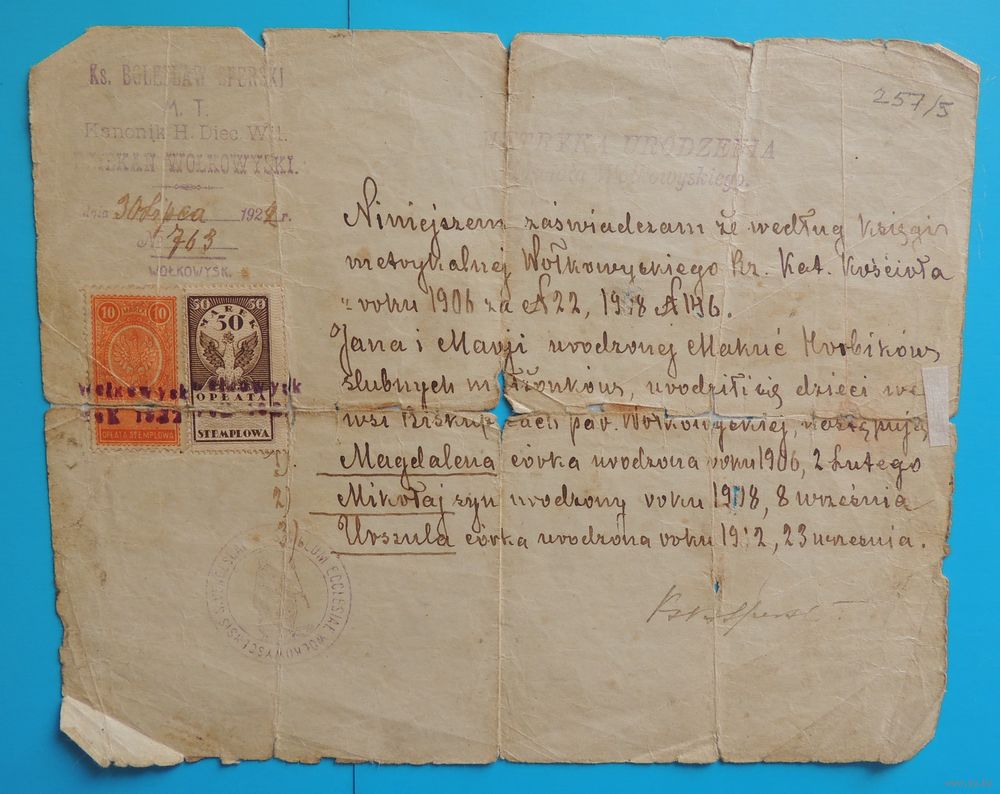 Ks. BOLESŁAW SPERSKI
M. T.
Kanonik H. Diec. Wil.
DZIEKAN WOŁKOWYSKI.
dnia 30 Lipca 1922 r.
№ 763
WOŁKOWYSK.
257/3
METRYKA URODZENIA
Wołkowyskiego.
Niniejszem zaświadczam że według Księgi
metrykalnej Wołkowyskiego Rz. Kat. Kościoła
z roku 1906 za № 22, 1908 № 196.
Jana i Marji urodzonej Makuć Hrobików
ślubnych małżonków, urodziłi się dzieci we
wsi pow. Wołkowyskiej, następują
1) Magdalena córka urodzona roku 1906, 2 Lutego
2) Mikołaj syn urodzony roku 1908, 8 września
3) Urszula córka urodzona roku 1912, 23 września.
10 MAREK 10
OPŁATA STEMPLOWA
50 50
MAREK
50
OPŁATA
STEMPLOWA
Wołkowysk Wołkowysk
Rok 1922 Rok 1922
SIGILLUM ECCLESIAE WOLKOVYSCENSIS